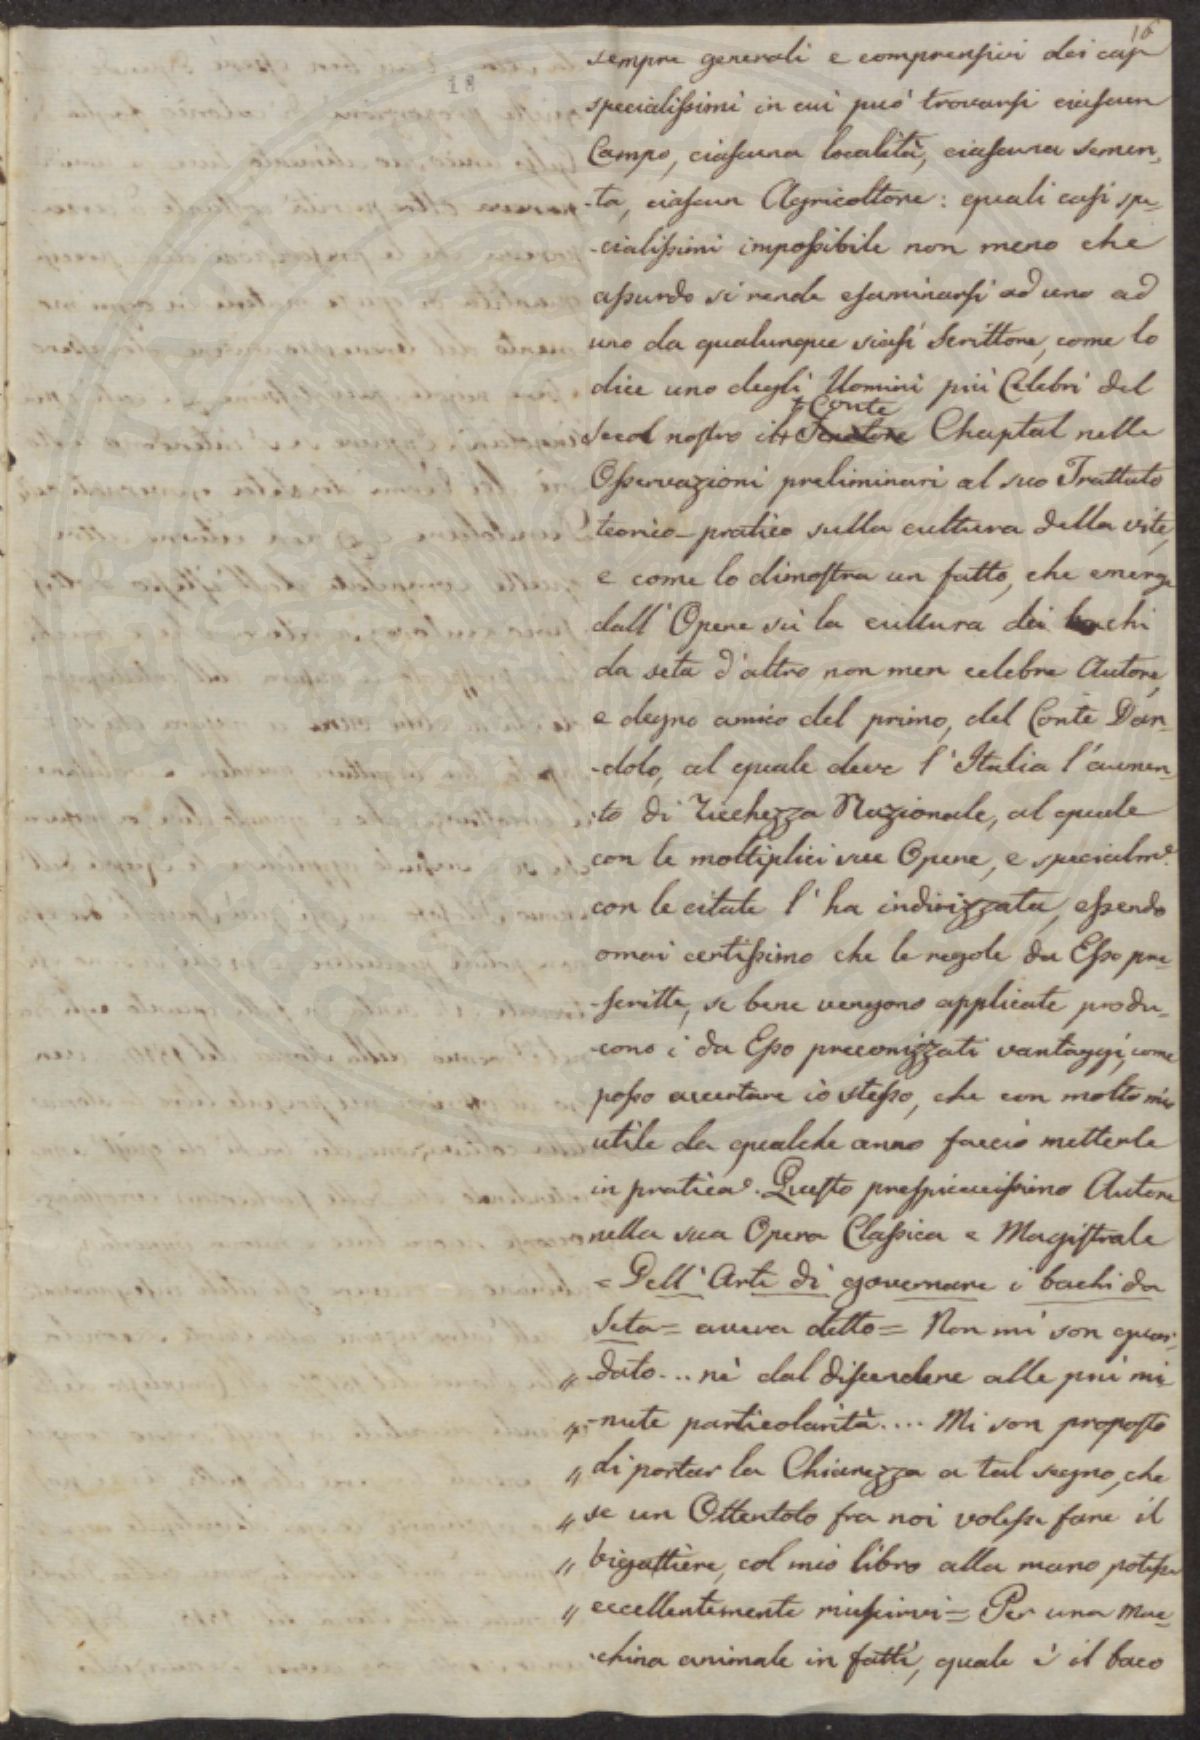 16
18
sempre generali e comprensivi dei casi
specialissimi in cui può trovarsi ciascun
Campo, ciascuna località, ciascuna semen-
-ta, ciascun Agricoltore: quali casi spe-
-cialissimi impossibile non meno che
assurdo si rende esaminarsi ad uno ad
uno da qualunque siasi Scrittore, come lo
dice uno degli Uomini più Celebri del
Conte
Secol nostro il Senatore Chaptal nelle
Osservazioni preliminari al suo Trattato
teorico-pratico sulla cultura della vite,
e come lo dimostra un fatto, che emerge
dall'Opere sù la cultura dei bachi
da seta d'altro non men celebre Autore,
e degno amico del primo, del Conte Dan-
-dolo, al quale deve l'Italia l'aumen-
-to di Ricchezza Nazionale, al quale
con le moltiplici sue Opere, e specialme.
con le citate l'ha indirizzata, essendo
omai certissimo che le regole da Esso pre-
-scritte, se bene vengono applicate produ-
-cono i da Esso preconizzati vantaggi, come
posso accertare io stesso, che con molto mio
utile da qualche anno faccio metterle
in pratica. Questo prespicacissimo Autore
nella sua Opera Classica e Magistrale
= Dell'Arte di governare i bachi da
Seta = aveva detto = Non mi son guar-
„ -dato... nè dal discendere alle più mi
„ -nute particolarità.... Mi son proposto
„ di portar la Chiarezza a tal segno, che
„ se un Ottentoto fra noi volesse fare il
„ bigattiere, col mio libro alla mano potesse
„ eccellentemente riuscirvi = Per una Mac-
-china animale in fatti, quale è il baco